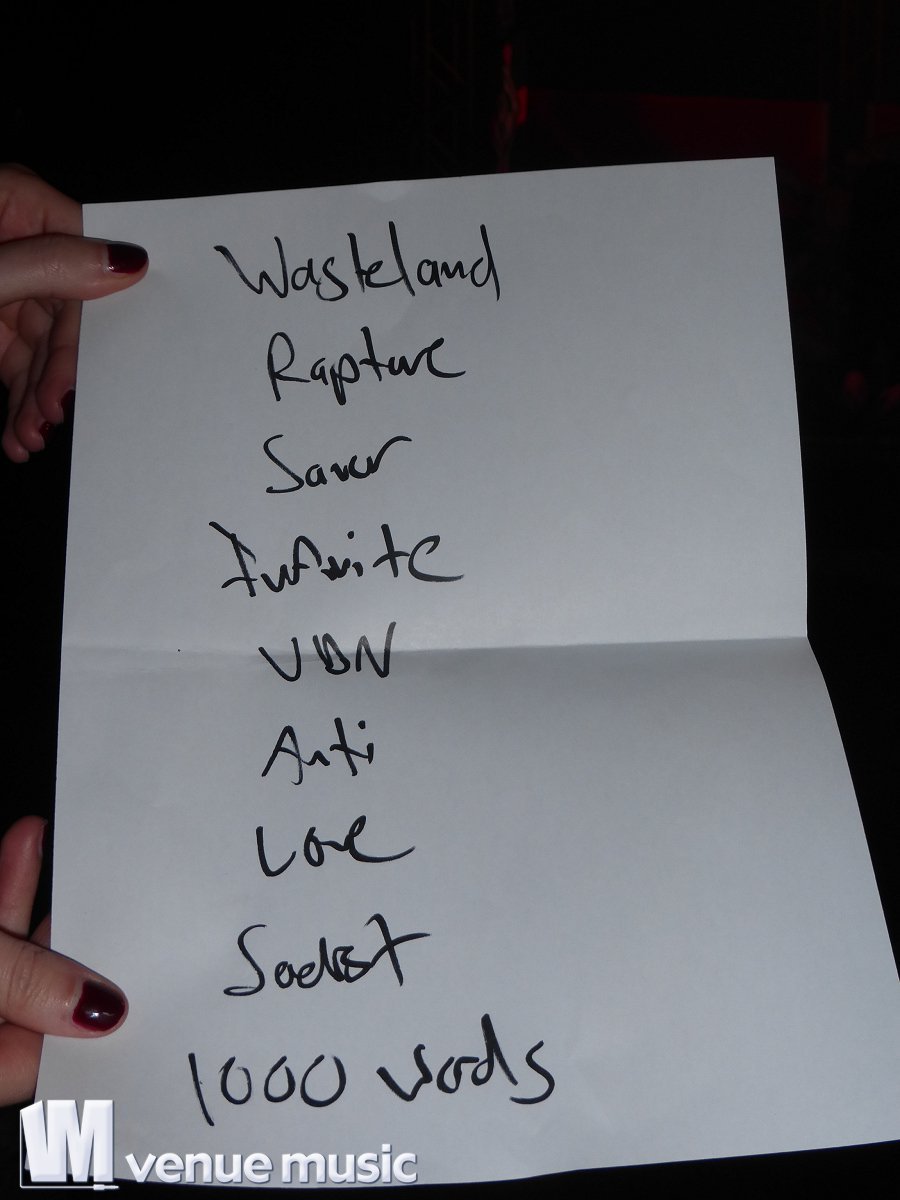 Wasteland
Rapture
Saver
Infinite
VBN
Anti
Love
1000 words
venue music